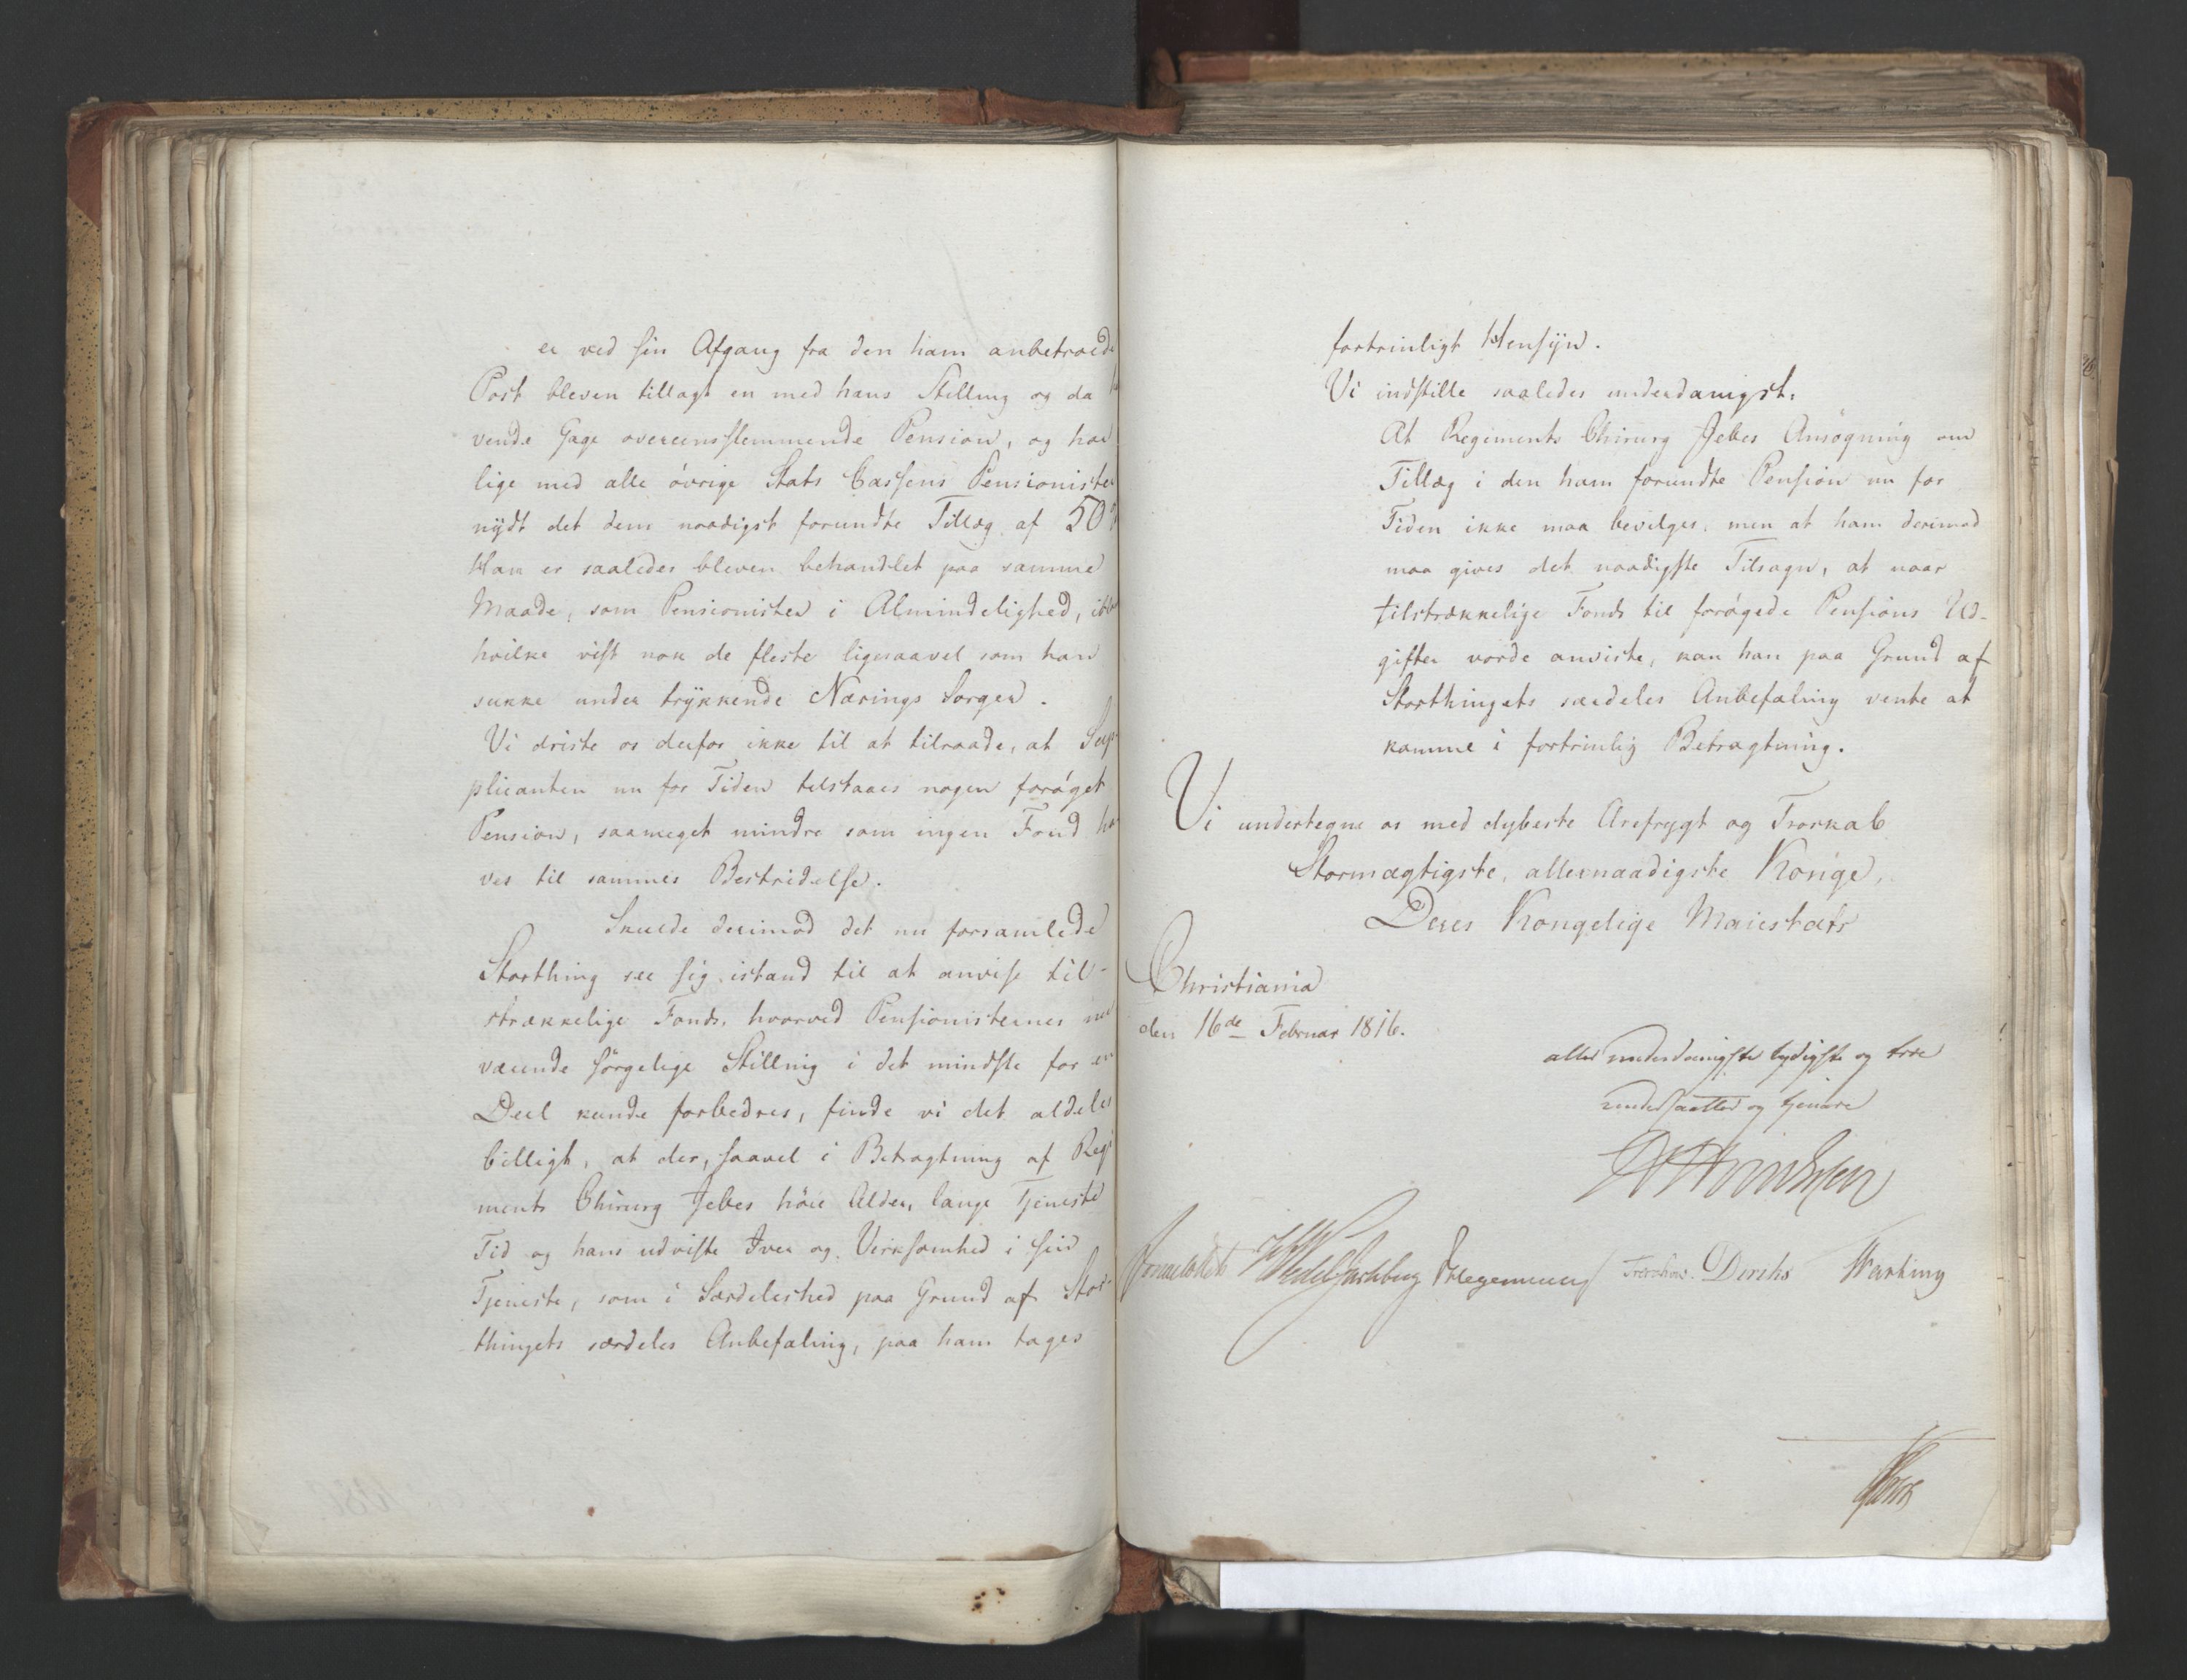 er ved sin Afgang fra den ham anbetroede
Post bleven tillagt en med hans Stilling og da
vende Gage overeensstemmende Pension, og har
lige med alle övrige Stats Cassens Pensionister
nydt det dem naadigst forundte Tillæg af 50
Han er saaledes bleven behandlet paa samme
Maade, som Pensionister i Almindelighed, iblandt
hvilke vist nok de fleste ligesaavel som han
sukke under trykkende Nærings Sorger.
Vi driste os derfor ikke til at tilraade, at Sup-
plicanten nu for Tiden tilstaaes nogen forøget
Pension, saameget mindre som ingen Fond ha
ves til sammes Bestridelse.
Skulde derimod det nu forsamlede
Storthing see sig istand til at anvise til-
strækkelige Fonds, hvorved Pensionisternes nu
værende sørgelige Stilling i det mindste for en
Deel kunde forbedres, finde vi det aldeles
billigt, at der, saavel i Betragtning af Regi
ments Chirurg Jebes höie Alder, lange Tjeneste
Tid og hans udviste Iver og Virksomhed i sin
Tjeneste, som i Særdeleshed paa Grund af Stor-
thingets særdeles Anbefaling, paa ham tages
fortrinligt Hensyn.
Vi indstille saaledes underdanigst:
At Regiments Chirurg Jebes Ansøgning om
Tillæg i den ham forundte Pension nu for
Tiden ikke maa bevilges, men at ham derimod
maa gives det naadigste Tilsagn, at naar
tilstrækkelige Fonds til forøgede Pensions Ud-
gifter vorde anviste, kan han paa Grund af
Storthingets særdeles Anbefaling vente at
komme i fortrinlig Betragtning.
Vi undertegne os med dybeste Ærefrygt og Troskab
Stormægtigste, allernaadigste Konge,
Deres Kongelige Maiestæts
Christiania
den 16de Februar 1816.
allerunderdanigste lydigste og troe
undersaatter og tjenere
Sommerhielm HWedel Jarlsberg DHegermann Treschow. Diriks Motzfeldt